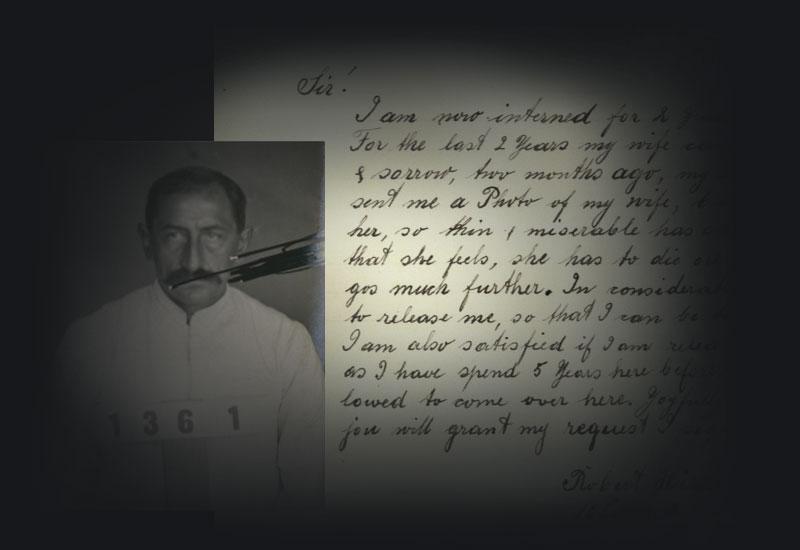 Sir!
I am now interned for 2
For the last 2 Years my wife
& sorrow, two months ago, my
sent me a Photo of my wife,
her, so thin & miserable has
that she feels, she has to die
gos much further. In
to release me, so that I can be
I am also satisfied if I am
as I have spend 5 Years here
lowed to come over here.
you will grant my request I
Robert
1361